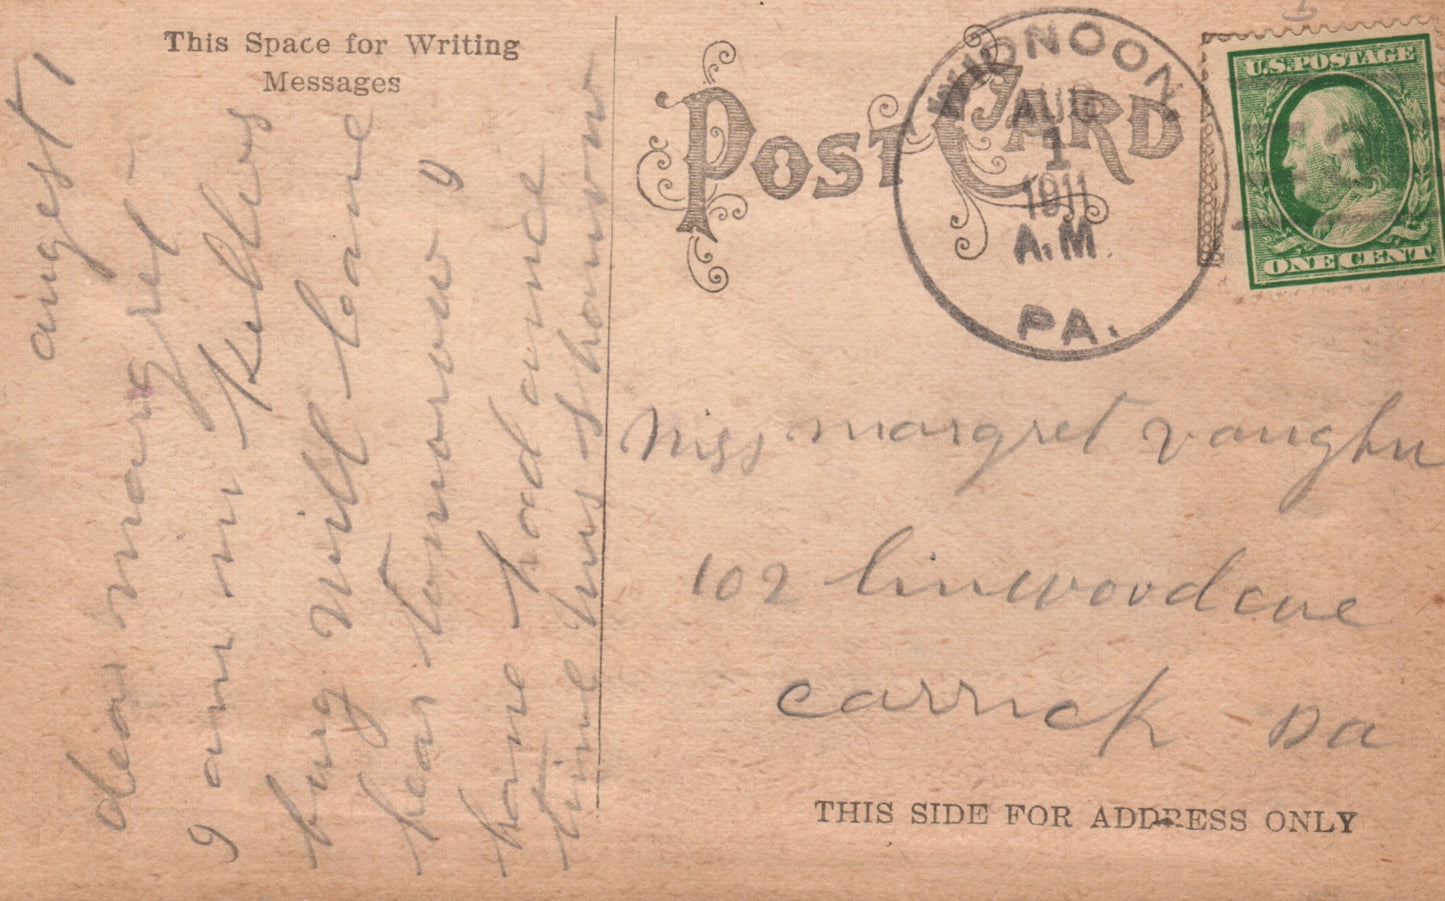 This Space for Writing
Messages
POST CARD
AUG
1
1911
A.M.
PA.
U.S. POSTAGE
ONE CENT
augest 1
dear margret
I am in kellers
burg will leave
hear tomorow I
have had a nice
time
Miss margret vaughn
102 linwood ave
Carrick Pa
THIS SIDE FOR ADDRESS ONLY